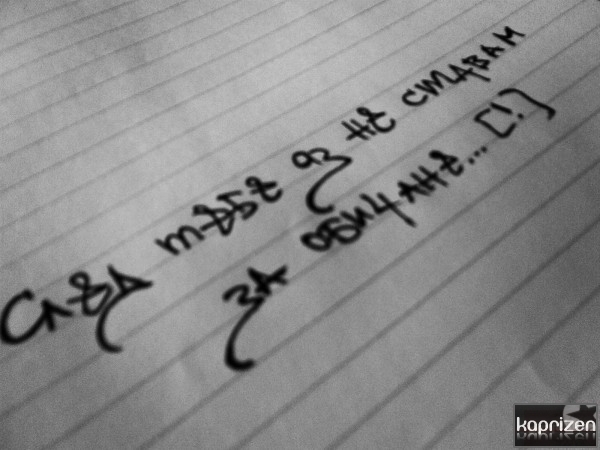 След тебе аз не ставам
за обичане... [!]
kaprizen